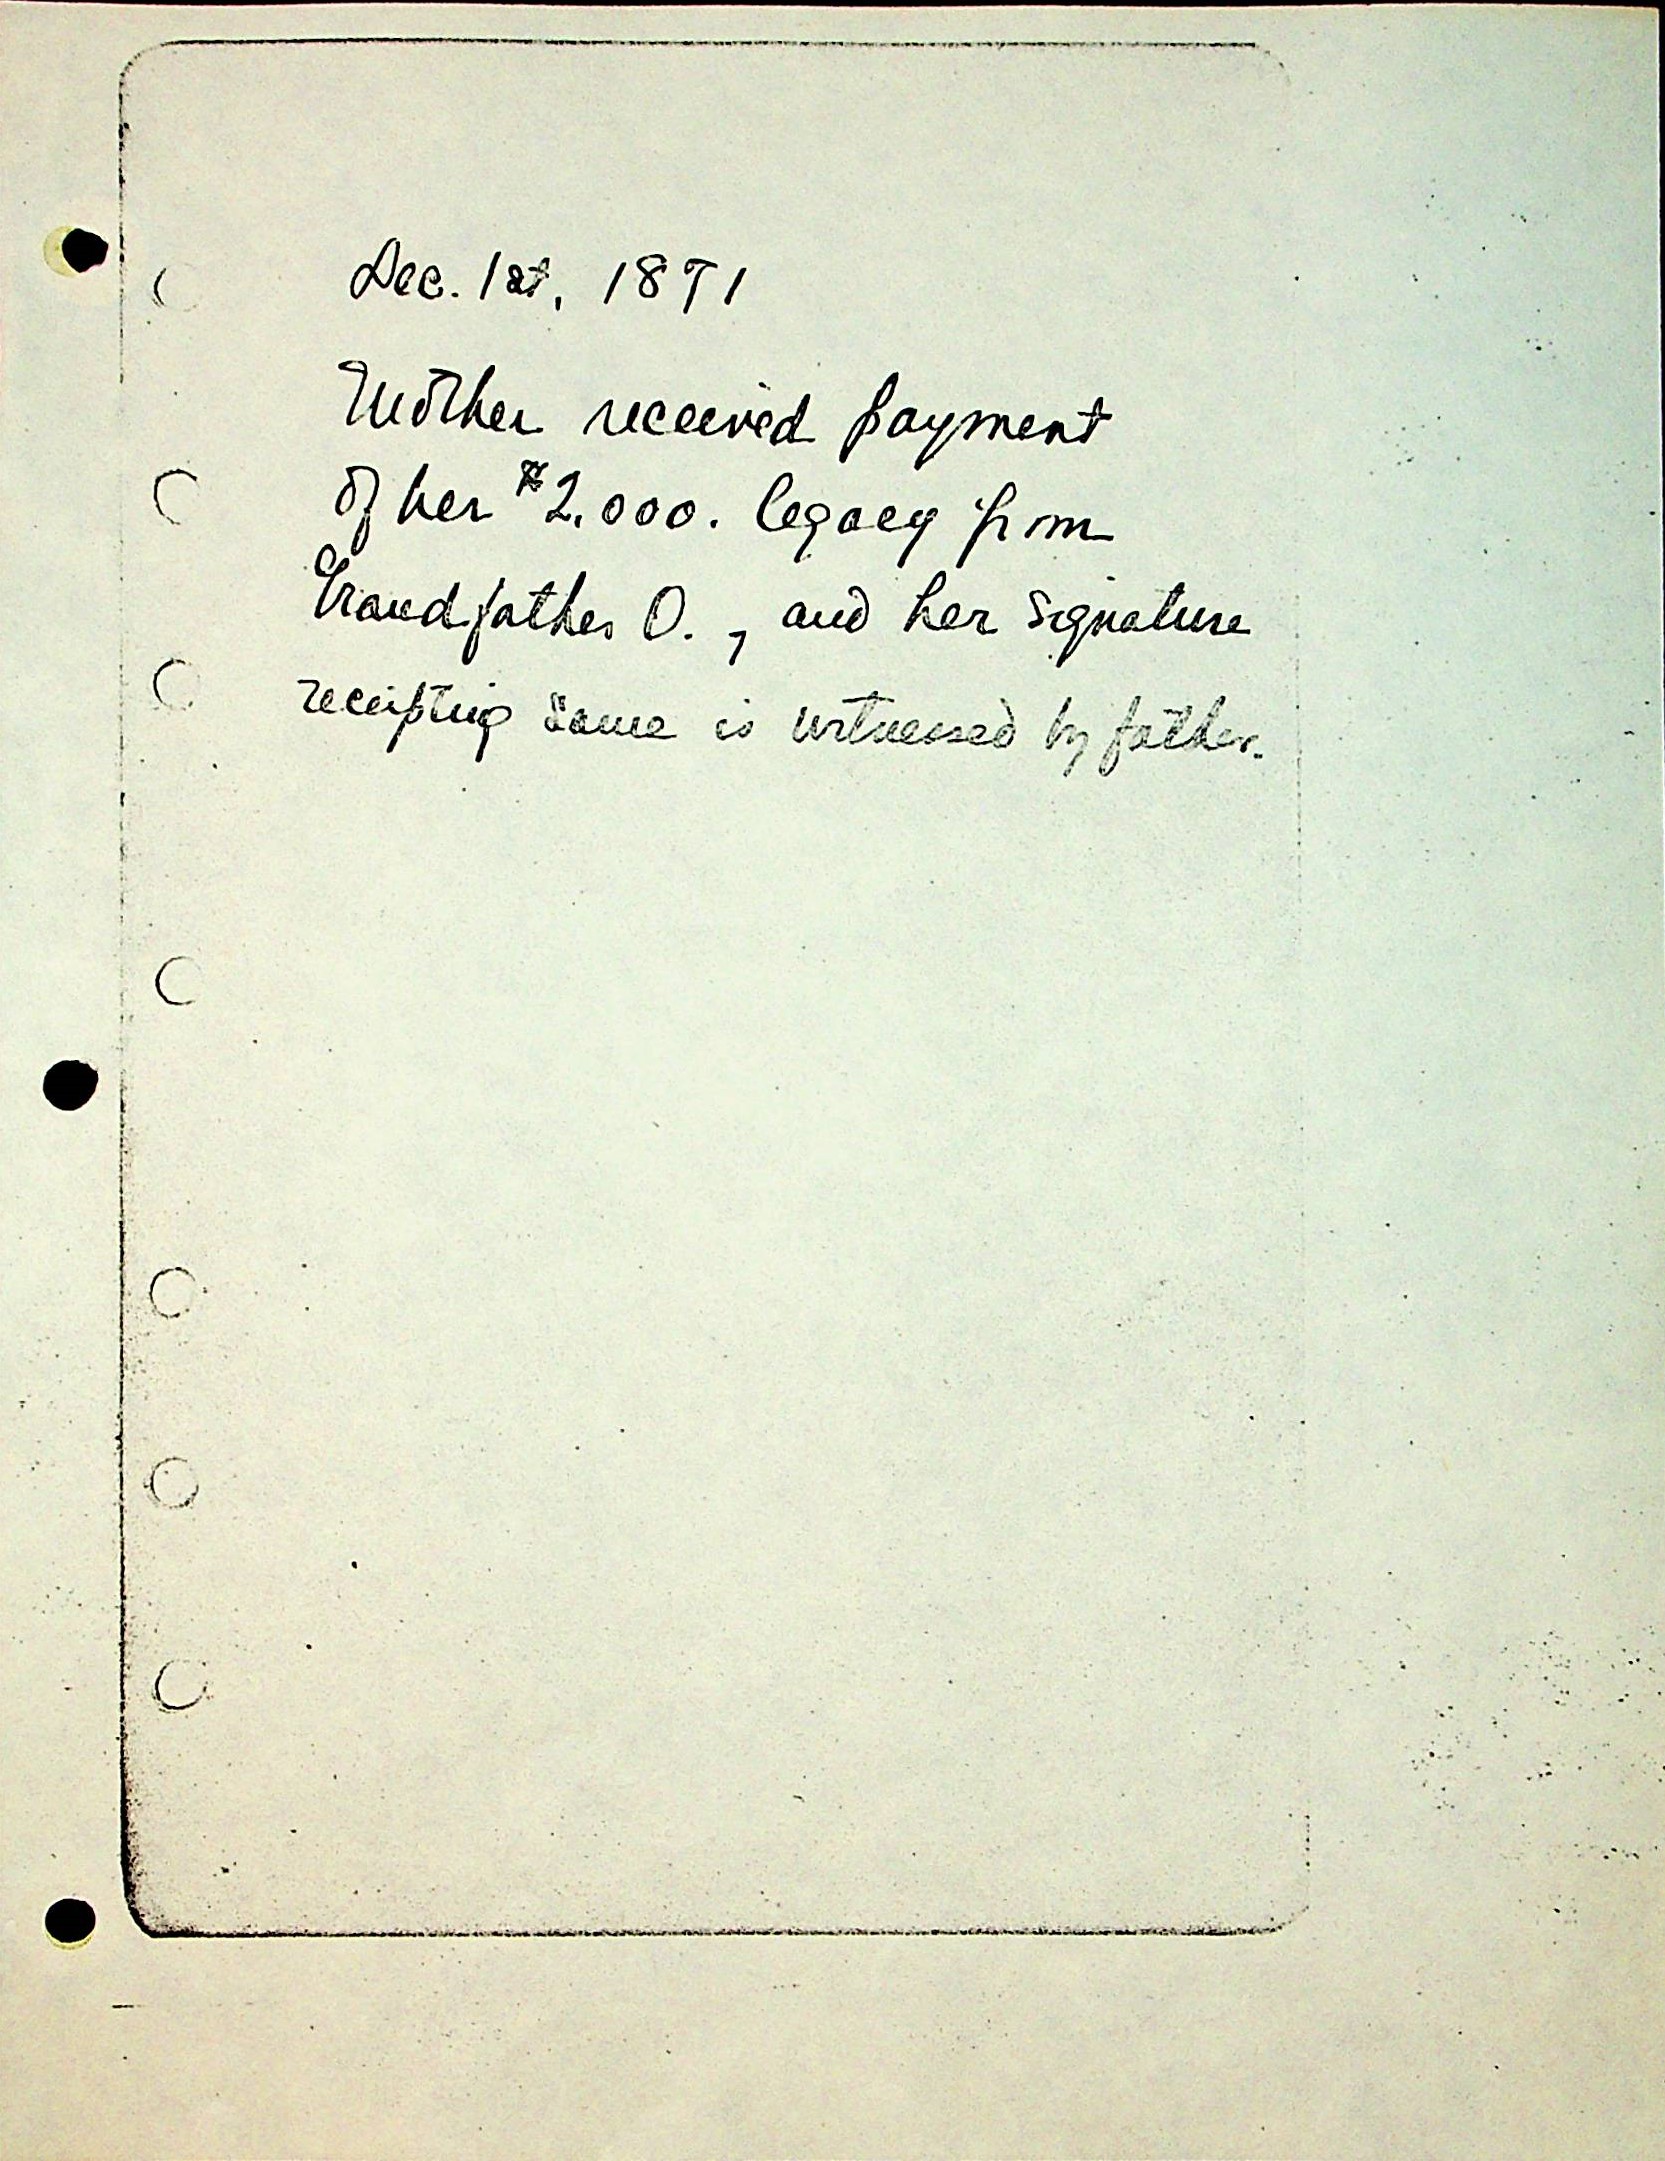 Dec. 1st, 1871
Mother received payment
of her $2,000. legacy from
Grandfather O., and her signature
receipting same is witnessed by father.